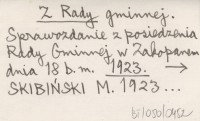 Z Rady gminnej.
Sprawozdanie z posiedzenia
Rady Gminnej w Zakopanem
dnia 18 b.m. 1923. →
SKIBIŃSKI M. 1923...
bi/050/0952